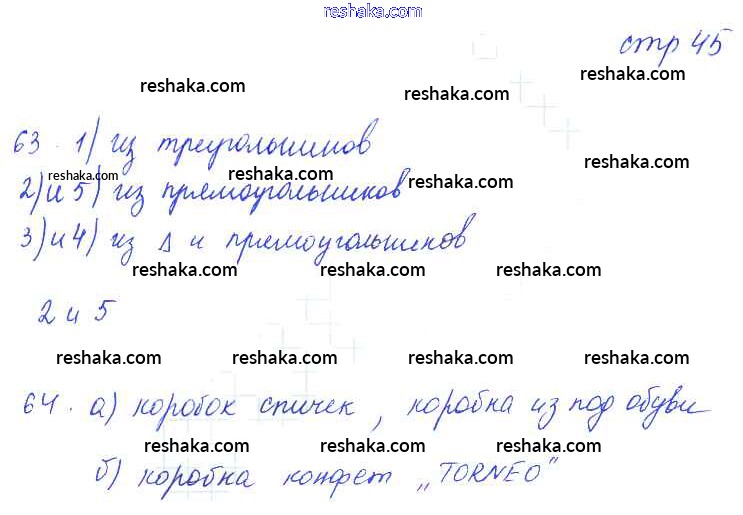 reshaka.com
стр 45
reshaka.com reshaka.com reshaka.com
63. 1) из треугольников
reshaka.com reshaka.com reshaka.com reshaka.com
2) и 5) из прямоугольников
3) и 4) из Δ и прямоугольников
reshaka.com reshaka.com reshaka.com
2 и 5
reshaka.com reshaka.com reshaka.com reshaka.com
64. а) коробок спичек, коробка из под обуви
reshaka.com reshaka.com reshaka.com
б) коробка конфет „TORNEO"